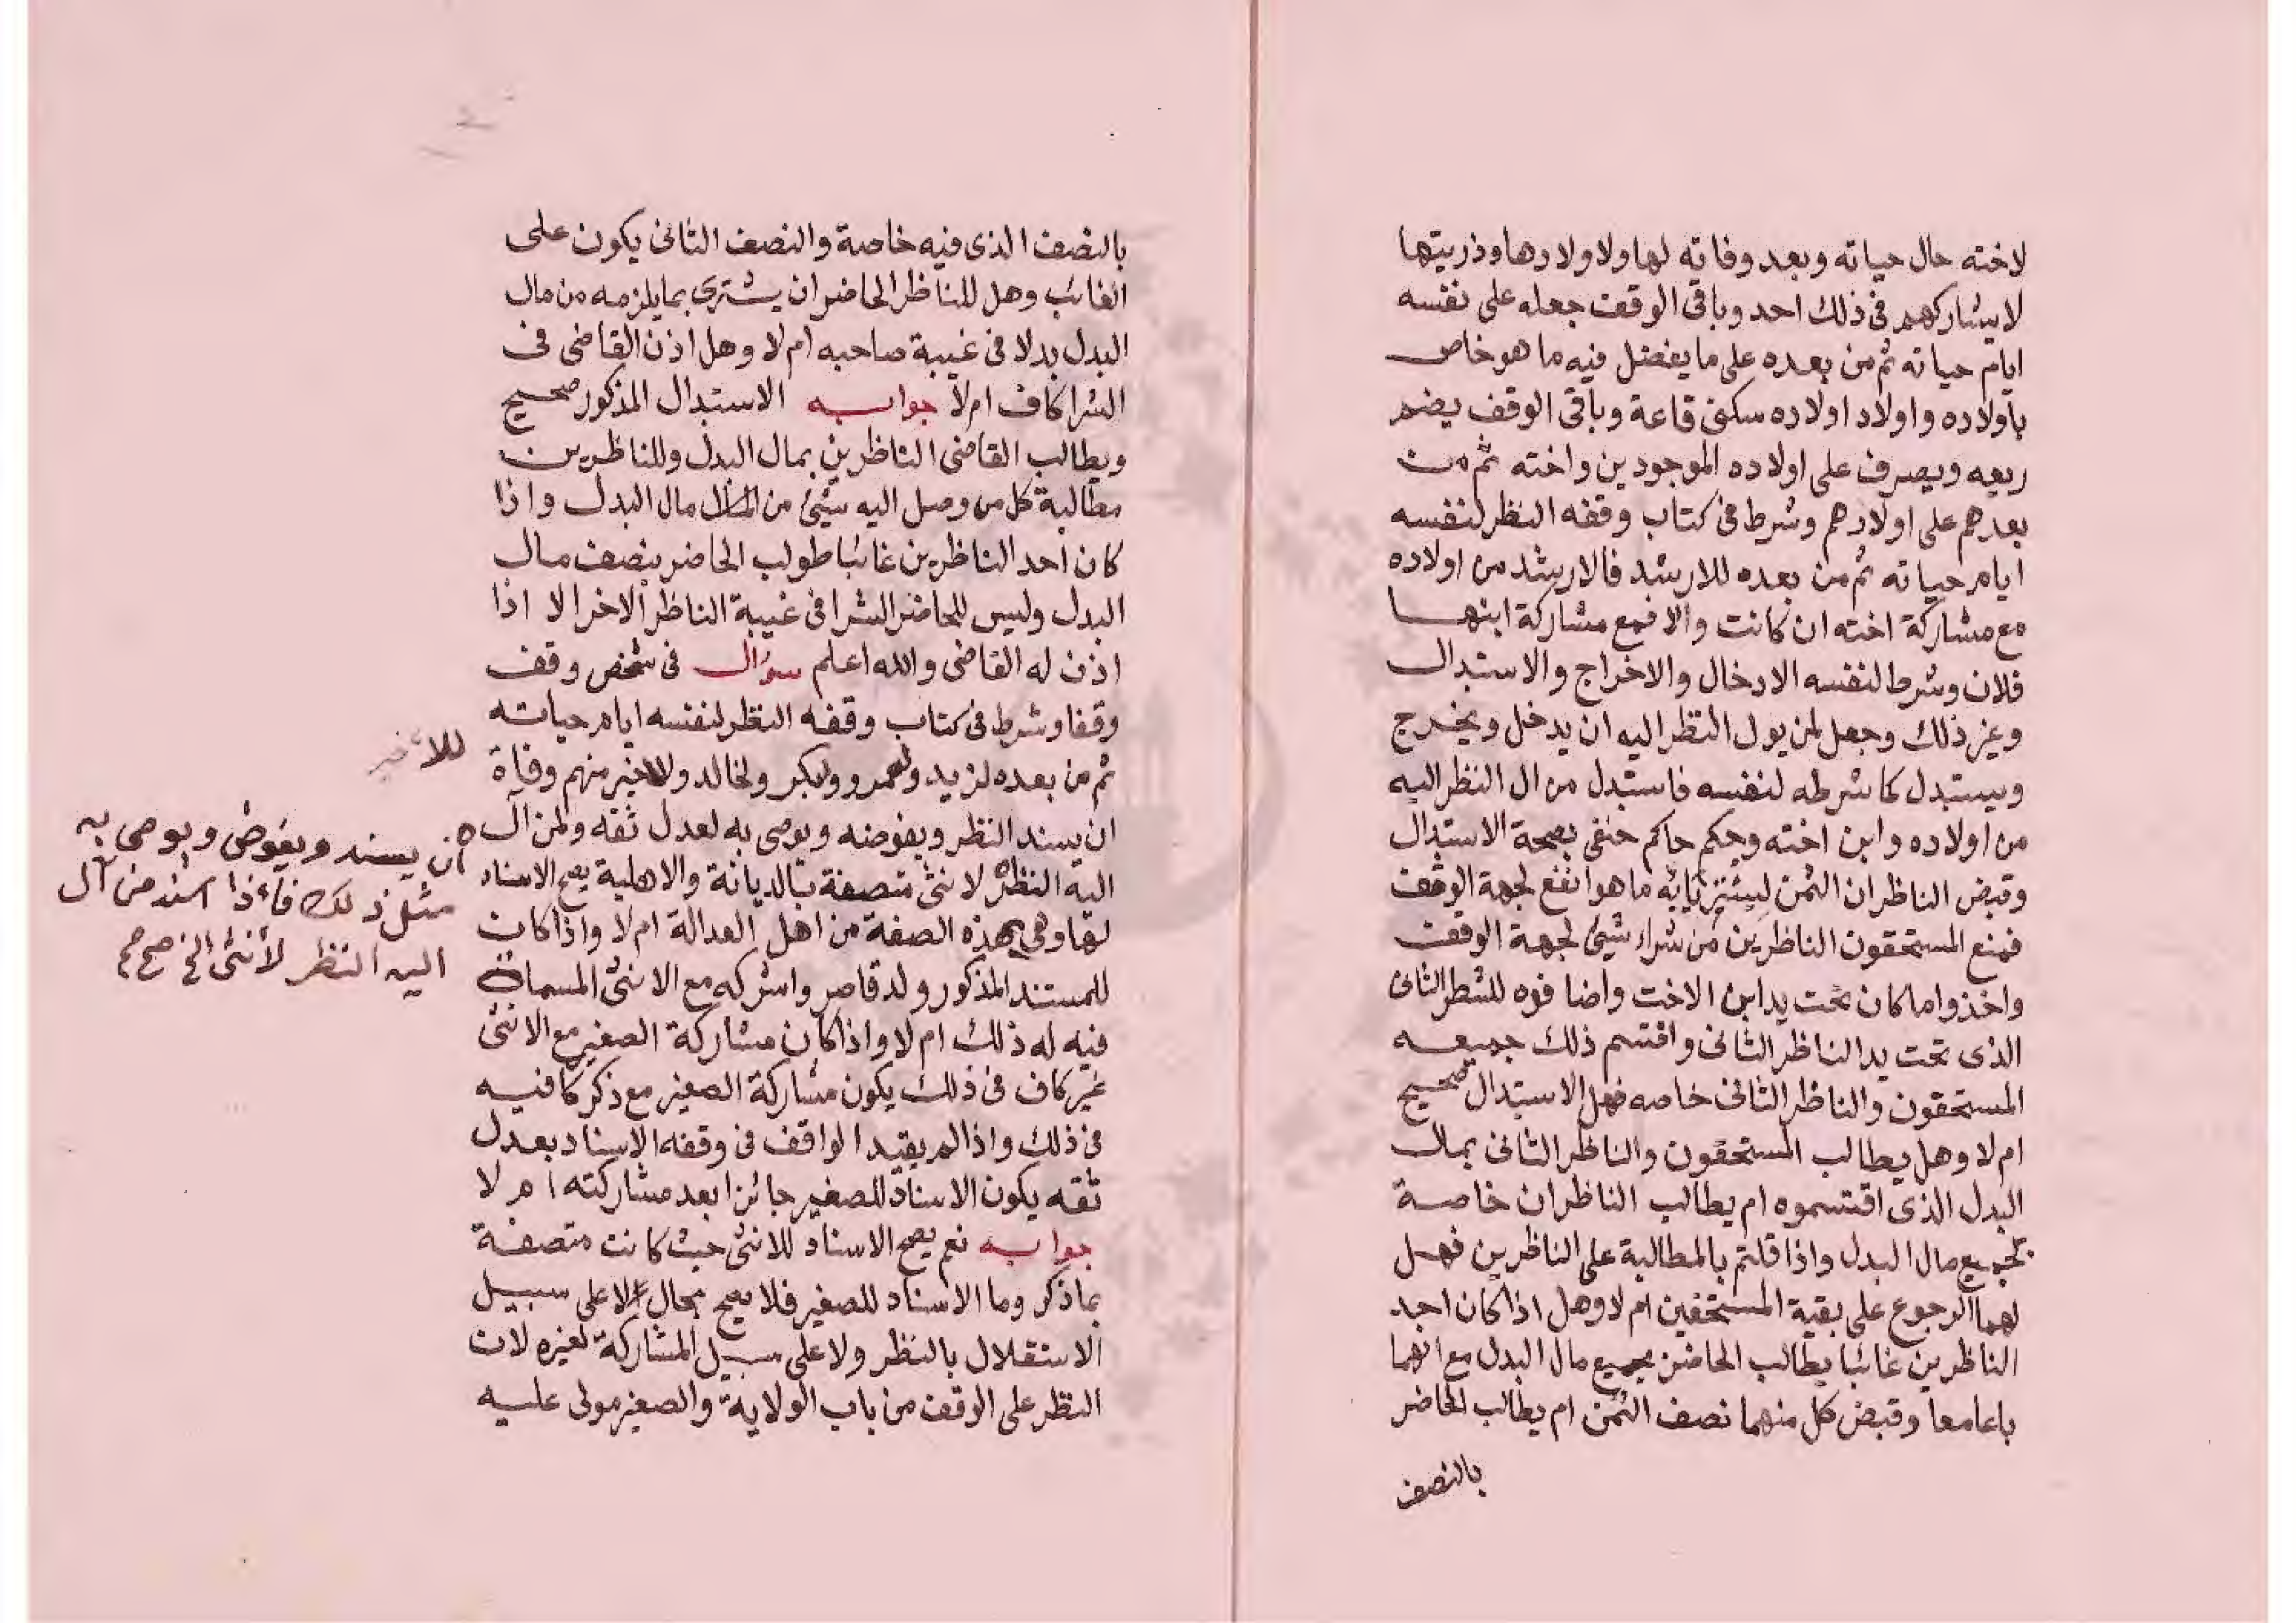 لاخته حال حياته وبعد وفاته لها ولاولادها وذريتها
لا يشاركهم فى ذلك احد وباقى الوقف جعله على نفسه
ايام حياته ثم من بعده على ما يفضل فيه ما هو خاص
باولاده واولاد اولاده سكنى قاعة وباقى الوقف يضم
ريعه ويصرف على اولاده الموجودين واخته ثم من
بعدهم على اولادهم وشرط فى كتاب وقفه النظر لنفسه
ايام حياته ثم من بعده للارشد فالارشد من اولاده
مع مشاركة اخته ان كانت والا فمع مشاركة ابنها
فلان وشرط لنفسه الادخال والاخراج والاستبدال
وغير ذلك وجعل لمن يول النظر اليه ان يدخل ويخرج
ويستبدل كما شرطه لنفسه فاستبدل من ال النظر اليه
من اولاده وابن اخته وحكم حاكم حنفى بصحة الاستبدال
وقبض الناظران الثمن ليشتريا به ما هو انفع لجهة الوقف
فمنع المستحقون الناظرين من شراء شيئ لجهة الوقف
واخذوا ما كان تحت يد ابن الاخت واضافوه للشطر الثانى
الذى تحت يد الناظر الثانى واقتسم ذلك جميعه
المستحقون والناظر الثانى خاصه فهل الاستبدال صحيح
ام لا وهل يطالب المستحقون والناظر الثانى بمال
البدل الذى اقتسموه ام يطالب الناظران خاصة
بجميع مال البدل واذا قلتم بالمطالبة على الناظرين فهل
لهما الرجوع على بقية المستحقين ام لا وهل اذا كان احد
الناظرين غائبا يطالب الحاضر بجميع مال البدل مع انهما
باعا معا وقبض كل منهما نصف الثمن ام يطالب الحاضر
بالنصف
بالنصف الذى فيه خاصة والنصف الثانى يكون على
الغائب وهل للناظر الحاضر ان يشترى بما يلزمه من مال
البدل بدلا فى غيبة صاحبه ام لا وهل اذن القاضى فى
الشرا كاف ام لا جوابه الاستبدال المذكور صحيح
ويطالب القاضى الناظرين بمال البدل وللناظرين
مطالبة كل من وصل اليه شيئ من مال البدل واذا
كان احد الناظرين غائبا طولب الحاضر بنصف مال
البدل وليس للحاضر الشرا فى غيبة الناظر الاخر الا اذا
اذن له القاضى والله اعلم سؤال فى شخص وقف
وقفا وشرط فى كتاب وقفه النظر لنفسه ايام حياته
ثم من بعده لزيد ولعمرو ولبكر ولخالد وللاخير منهم وفاة
ان يسند النظر ويفوضه ويوصى به لعدل ثقه ولمن آل
اليه النظر لانثى متصفة بالديانة والاهلية يصح الاسناد
لها وهى بهذه الصفة من اهل العدالة ام لا واذا كان
للمستند المذكور ولد قاصر واشركه مع الانثى المسماة
فيه له ذلك ام لا واذا كان مشاركة الصغير مع الانثى
غير كاف فى ذلك يكون مشاركة الصغير مع ذكر كافيه
فى ذلك واذا لم يقيد الواقف فى وقفه الاسناد بعدل
ثقه يكون الاسناد للصغير جائزا بعد مشاركته ام لا
جوابه نعم يصح الاسناد للانثى حيث كانت متصفة
بما ذكر وما الاسناد للصغير فلا يصح بحال لا على سبيل
الاستقلال بالنظر ولا على سبيل المشاركة لغيره لان
النظر على الوقف من باب الولاية والصغير مولى عليه
للأخير
ان يسند ويفوض ويوصى به
مثل ذلك فاءذا اسند من آل
اليه النظر لأنثى الخ صح صح